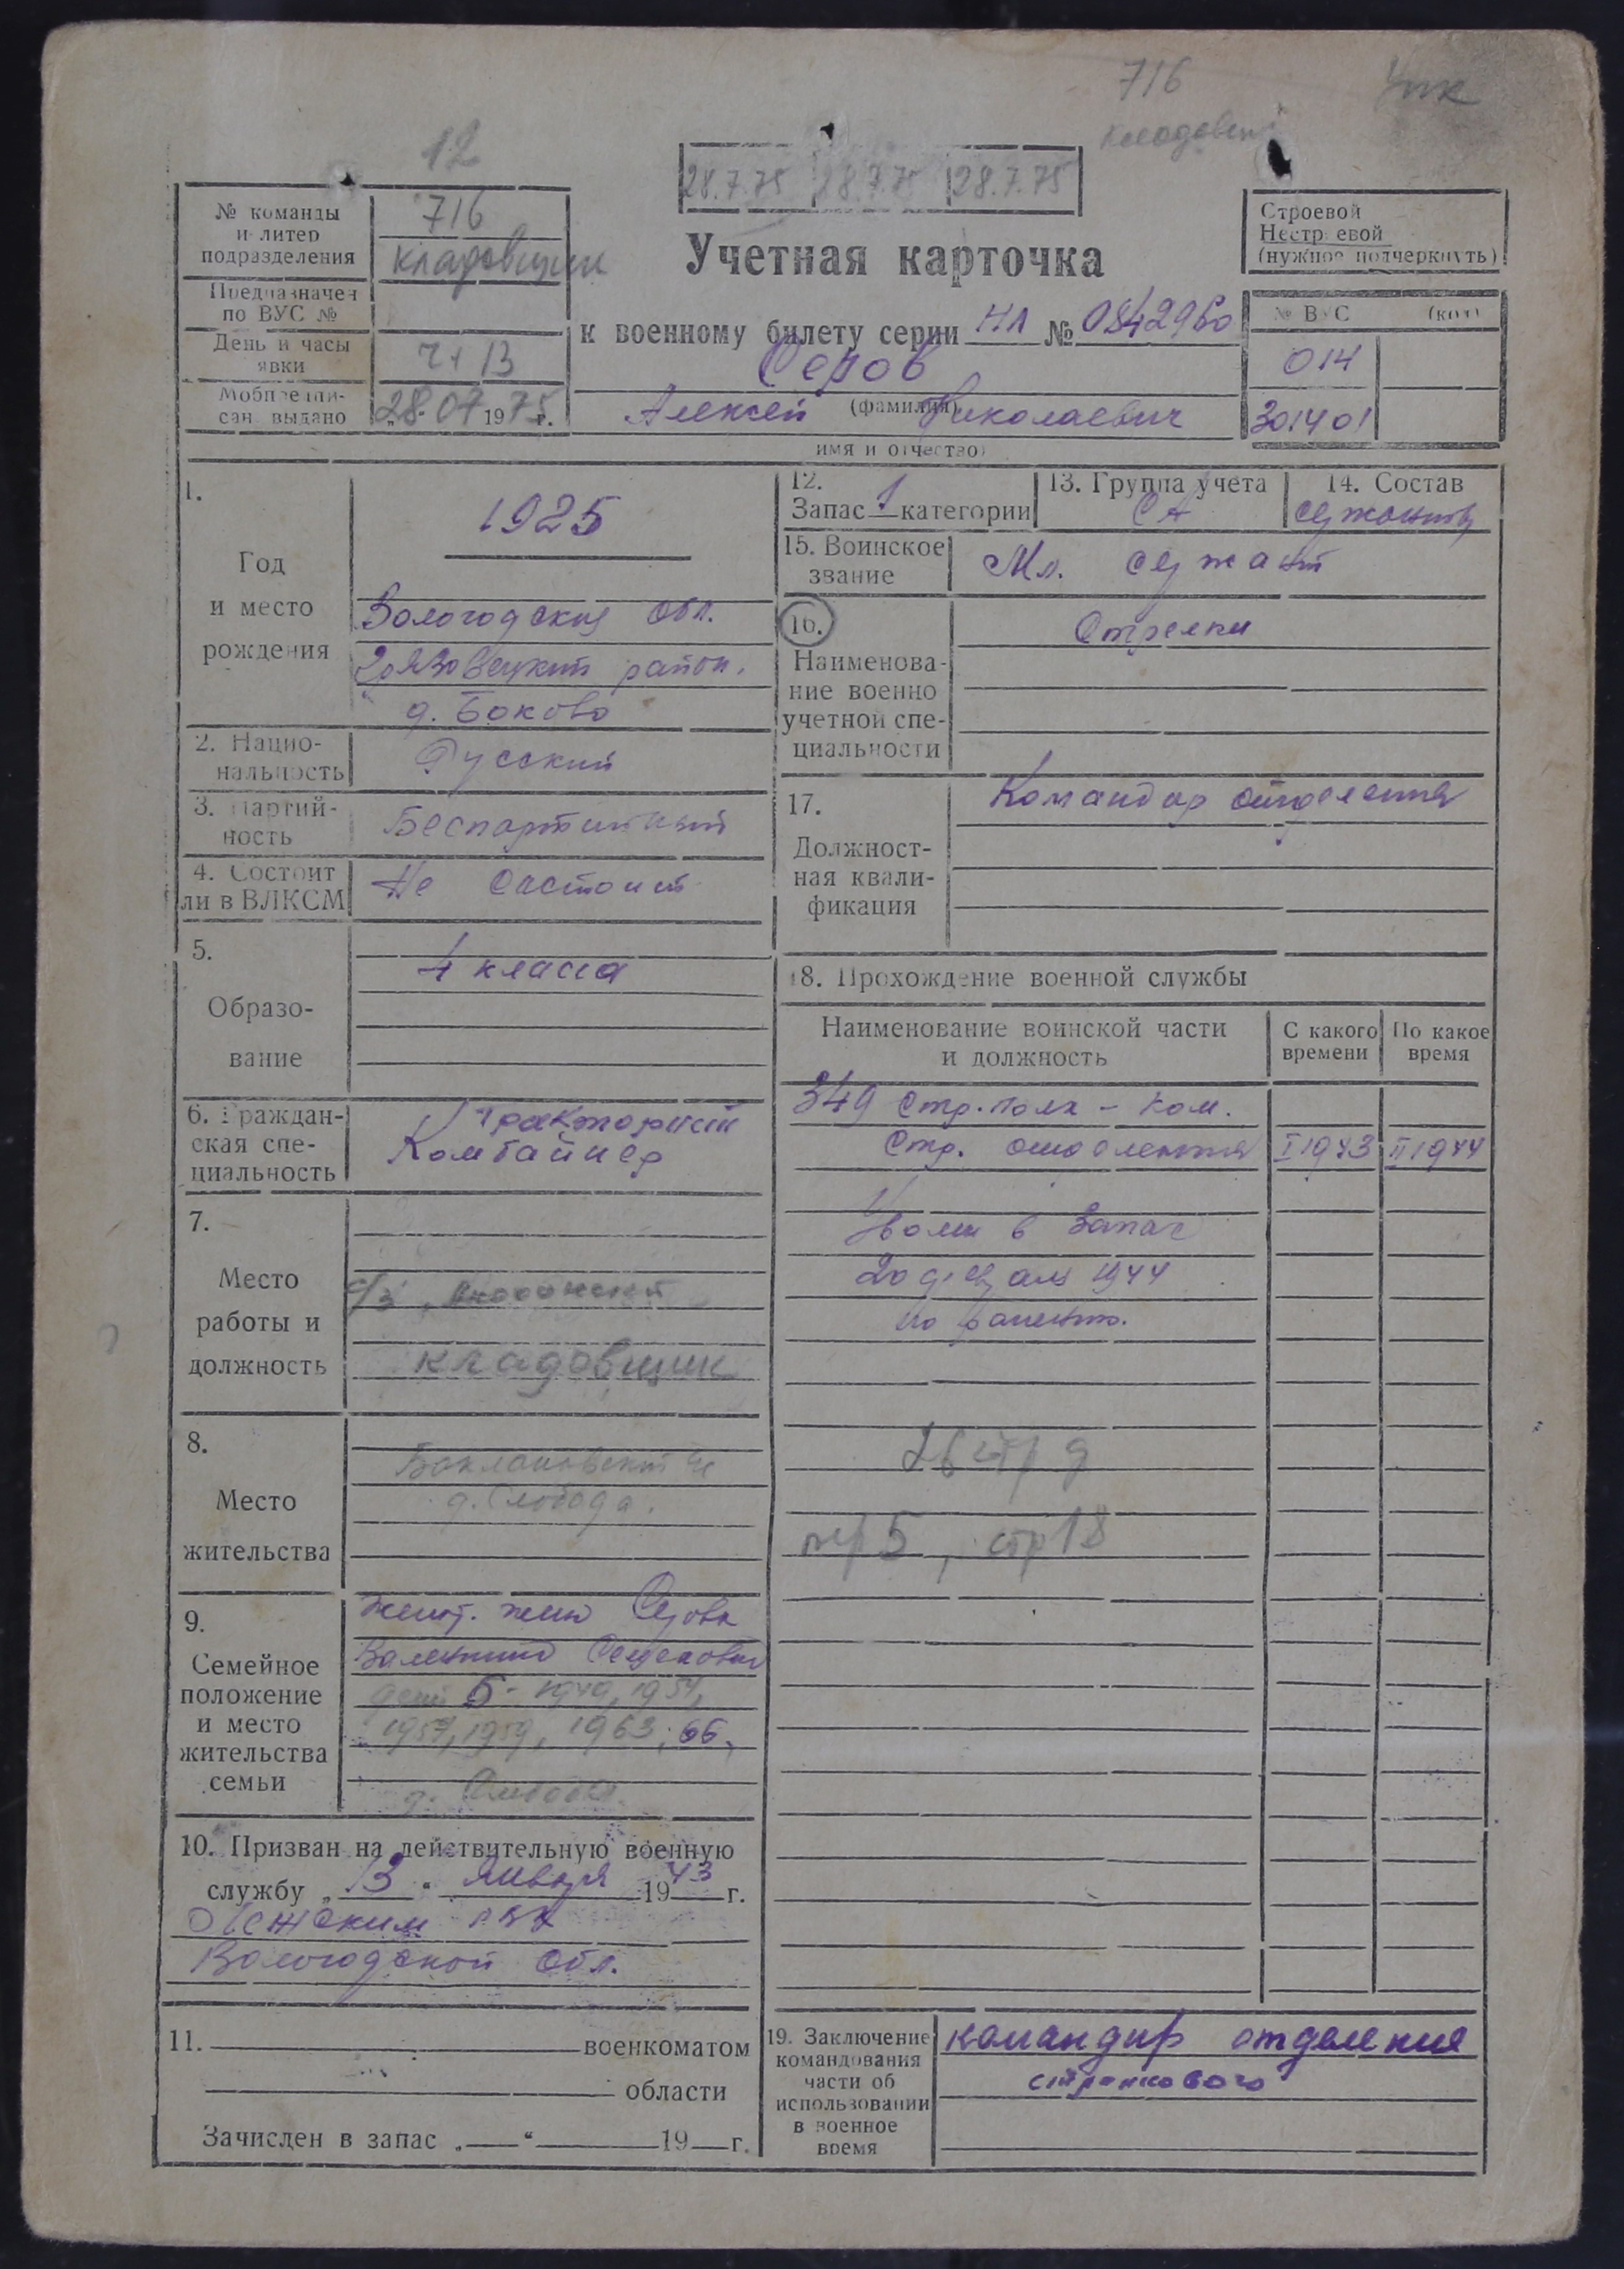 716
12
28.7.75 28.7.75 28.7.75
№ команды и литер подразделения
716
кладовщик
Предназначен по ВУС №
День и часы явки
Ч+13
Мобпредписан. выдано
„28“ 07 1975 г.
Учетная карточка
к военному билету серии НЛ № 0842960
Серов
(фамилия)
Алексей Николаевич
имя и отчество)
Строевой
Нестроевой
(нужное подчеркнуть)
№ ВУС (код)
014
301401
1.
Год и место рождения
1925
Вологодская обл.
Грязовецкий район.
д. Боково
2. Национальность
Русский
3. Партийность
Беспартийный
4. Состоит ли в ВЛКСМ
Не состоит
5.
Образование
4 класса
6. Гражданская специальность
Тракторист
Комбайнер
7.
Место работы и должность
с/з
кладовщик
8.
Место жительства
д. Слобода.
9.
Семейное положение и место жительства семьи
Женат. жена Серова
Валентина
дети 5 - 1949, 1954,
1957, 1959, 1963, 66,
д. Слобода.
10. Призван на действительную военную
службу „13“ января 1943 г.
РВК
Вологодской обл.
11. военкоматом
области
Зачислен в запас „ “ 19 г.
12.
Запас 1 категории
13. Группа учета
СА
14. Состав
сержантов
15. Воинское звание
Мл. сержант
16.
Наименование военно учетной специальности
Стрелки
17.
Должностная квалификация
Командир отделения
18. Прохождение военной службы
Наименование воинской части и должность
С какого времени
По какое время
349 стр. полк - ком.
стр. отделения I 1943 II 1944
Уволен в запас
20 февраля 1944
по ранению.
пр 5, стр 18
19. Заключение командования части об использовании в военное время
командир отделения
стрелкового